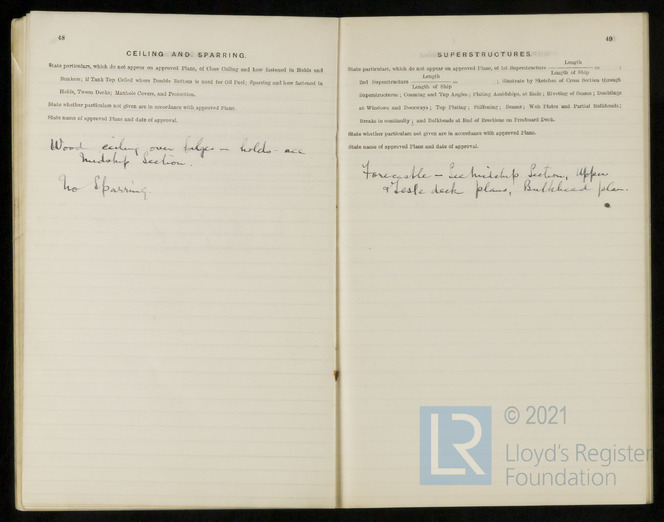 48
CEILING AND SPARRING.
State particulars, which do not appear on approved Plans, of Close Ceiling and how fastened in Holds and
Bunkers; if Tank Top Ceiled where Double Bottom is used for Oil Fuel; Sparring and how fastened in
Holds, Tween Decks; Manhole Covers, and Protection.
State whether particulars not given are in accordance with approved Plans.
State name of approved Plans and date of approval.
Wood ceiling over bilges in holds - see
Midship Section.
No Sparring.
49
SUPERSTRUCTURES
State particulars, which do not appear on approved Plans, of 1st Superstructure Length / Length of Ship = ;
2nd Superstructure Length / Length of Ship = ; illustrate by Sketches of Cross Section through
Superstructures; Coaming and Top Angles; Plating Amidships, at Ends; Riveting of Seams; Doublings
at Windows and Doorways; Top Plating; Stiffening; Beams; Web Plates and Partial Bulkheads;
Breaks in continuity; and Bulkheads at End of Erections on Freeboard Deck.
State whether particulars not given are in accordance with approved Plans.
State name of approved Plans and date of approval.
Forecastle - See Midship Section, Upper
& Fcsle deck plans, Bulkhead plan.
LR
© 2021
Lloyd's Register
Foundation